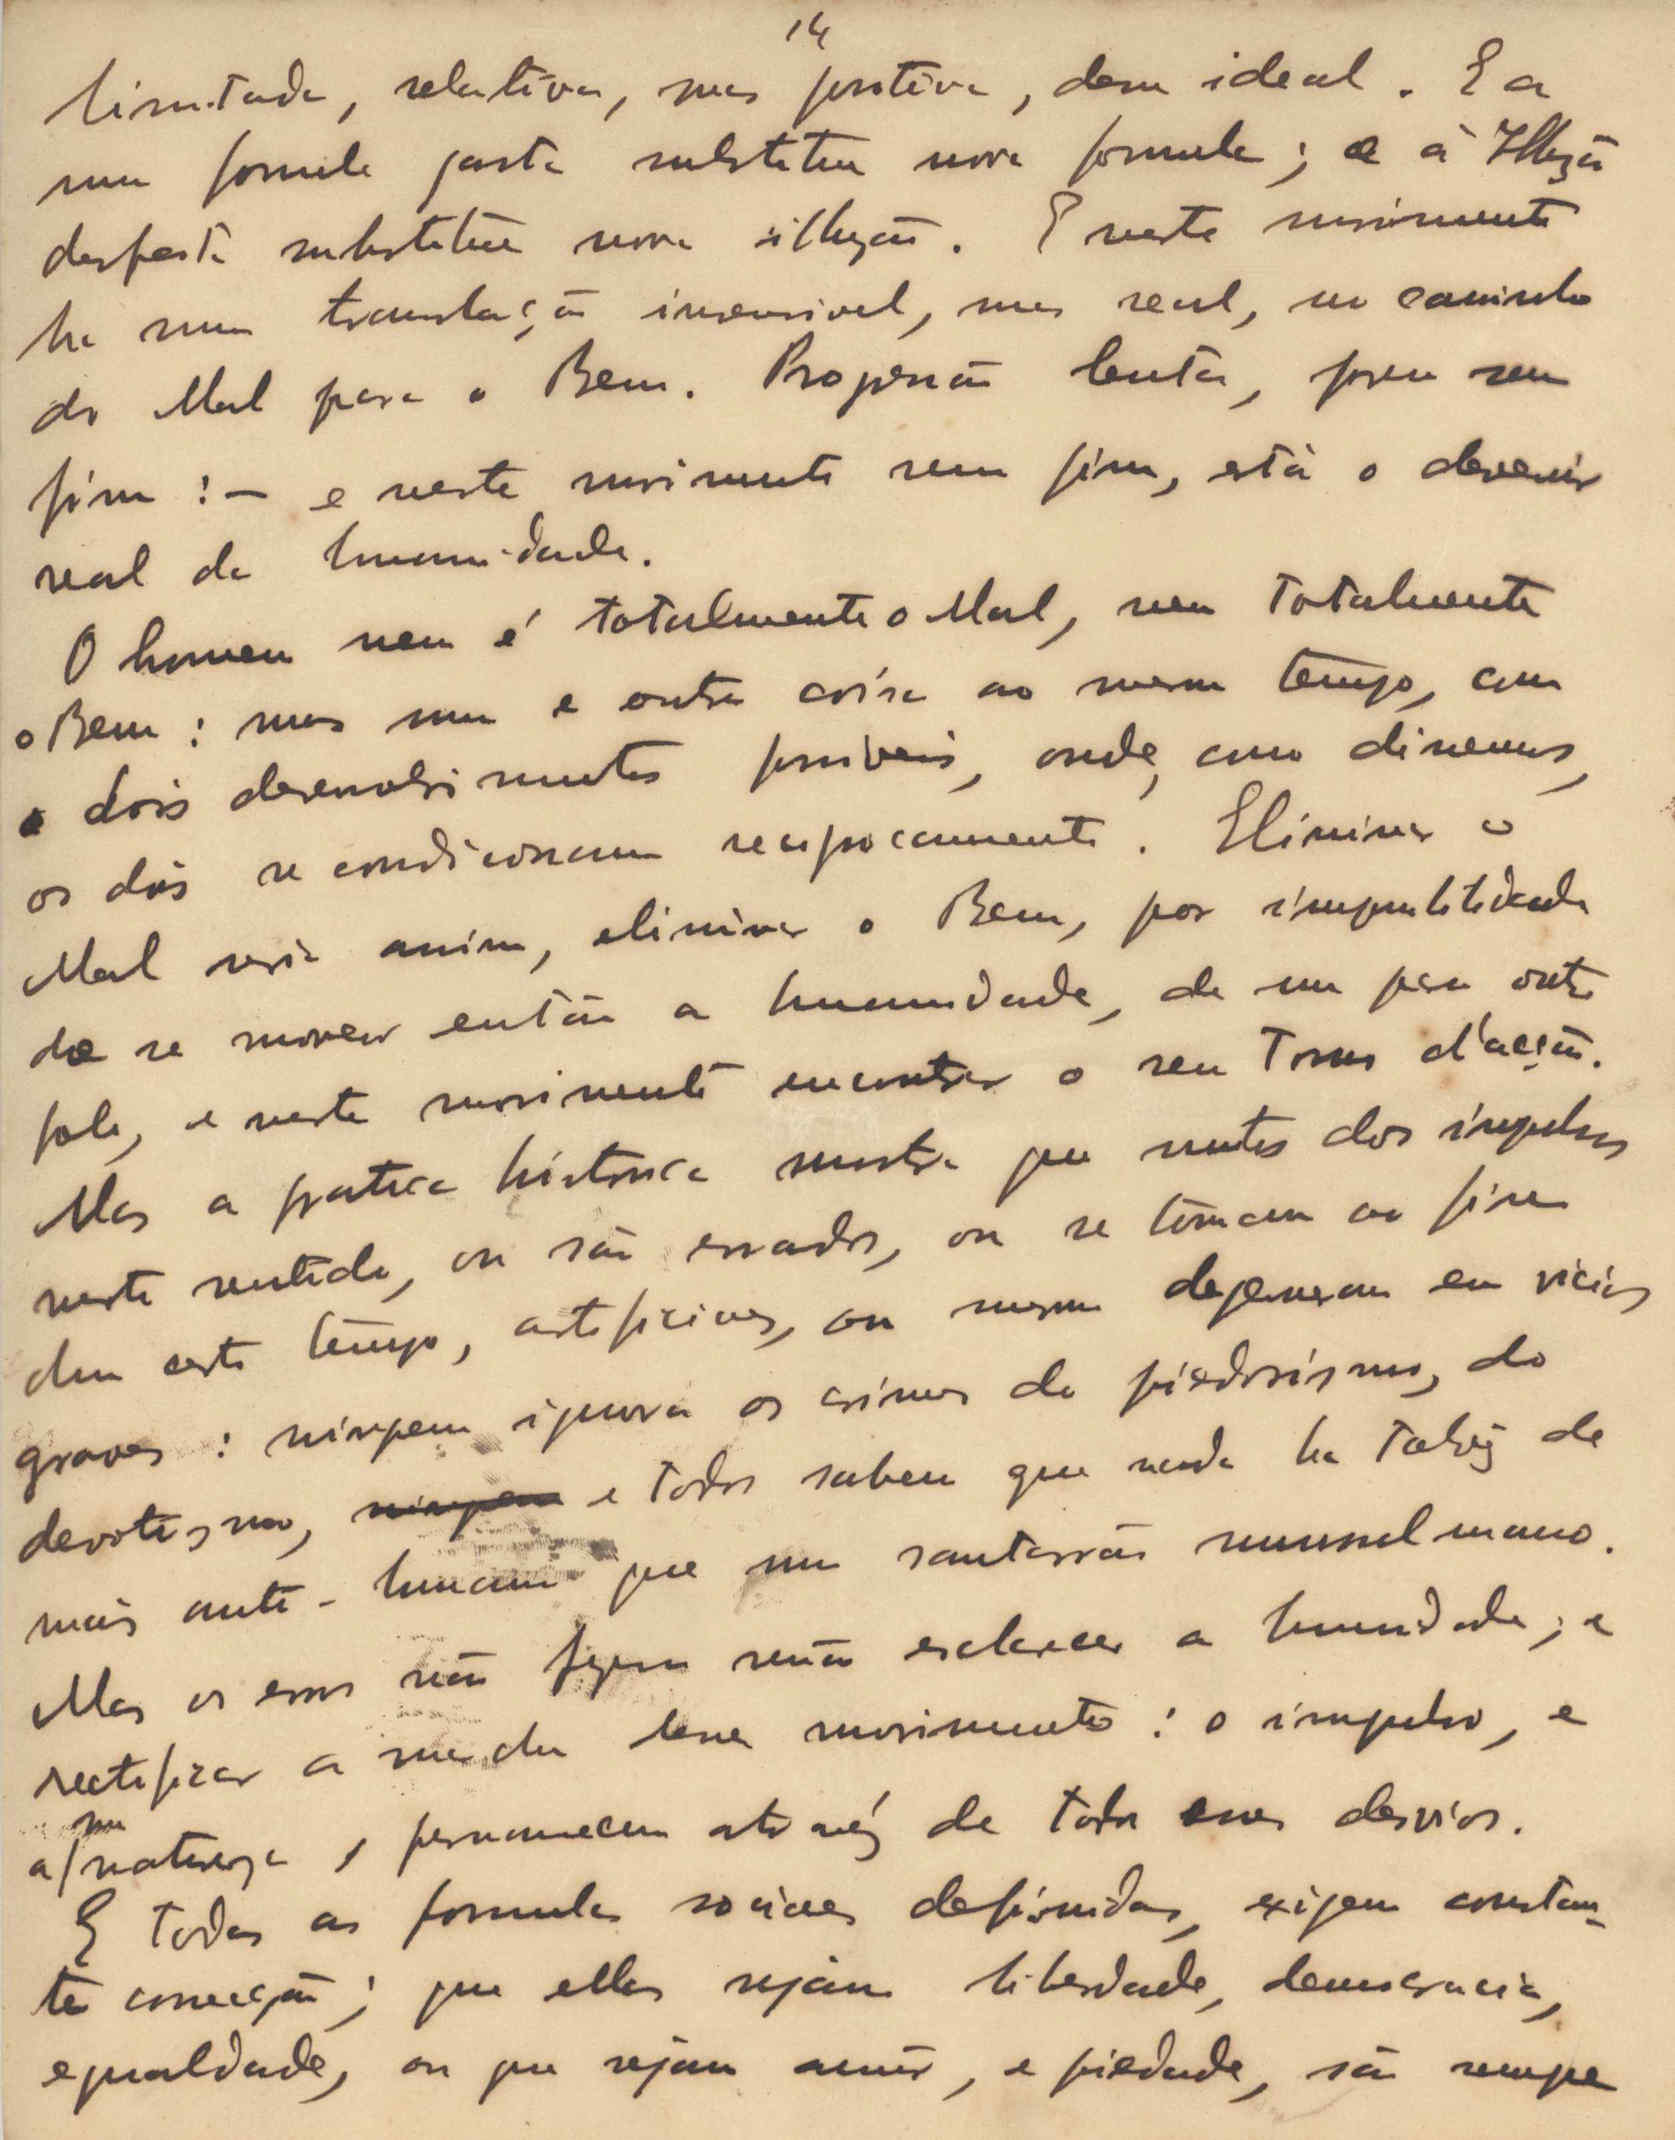 14
limitada, relativa, mas positiva, dum ideal. E a
uma formula gasta substitue nova formula; e à Illuzão
desfeita substitue nova illuzão. E neste movimento
ha uma translação insensivel, mas real, no caminho
do Mal para o Bem. Progressão lenta, porem sem
fim: — e neste movimento sem fim, está o devenir
real da humanidade.
O homem nem é totalmente o Mal, nem totalmente
o Bem: mas uma e outra coisa ao mesmo tempo, com
dois desenvolvimentos possiveis, onde, como dissemos,
os dois se condicionam reciprocamente. Eliminar o
Mal seria assim, eliminar o Bem, por impossibilidade
de se mover então a humanidade, de um para outro
polo, e neste movimento encontrar o seu Tonus d'acção.
Mas a pratica historica mostra que muitos dos impulsos
neste sentido, ou são errados, ou se tornam ao fim
dum certo tempo, artificiaes, ou mesmo degeneram em vicios
graves: ninguem ignora os crimes do piedosismo, do
devotismo, ninguem e todos sabem que nada ha talvez de
mais anti-humano que um santarrão mussulmano.
Mas os erros não fizeram senão esclarecer a humanidade; e
rectificar a marcha desse movimento: o impulso, e
a sua natureza, permanecem atravez de todos esses desvios.
E todas as formulas sociaes definidas, exigem constan-
te correcção; que ellas sejam liberdade, democracia,
egualdade, ou que sejam amôr, e piedade, são sempre